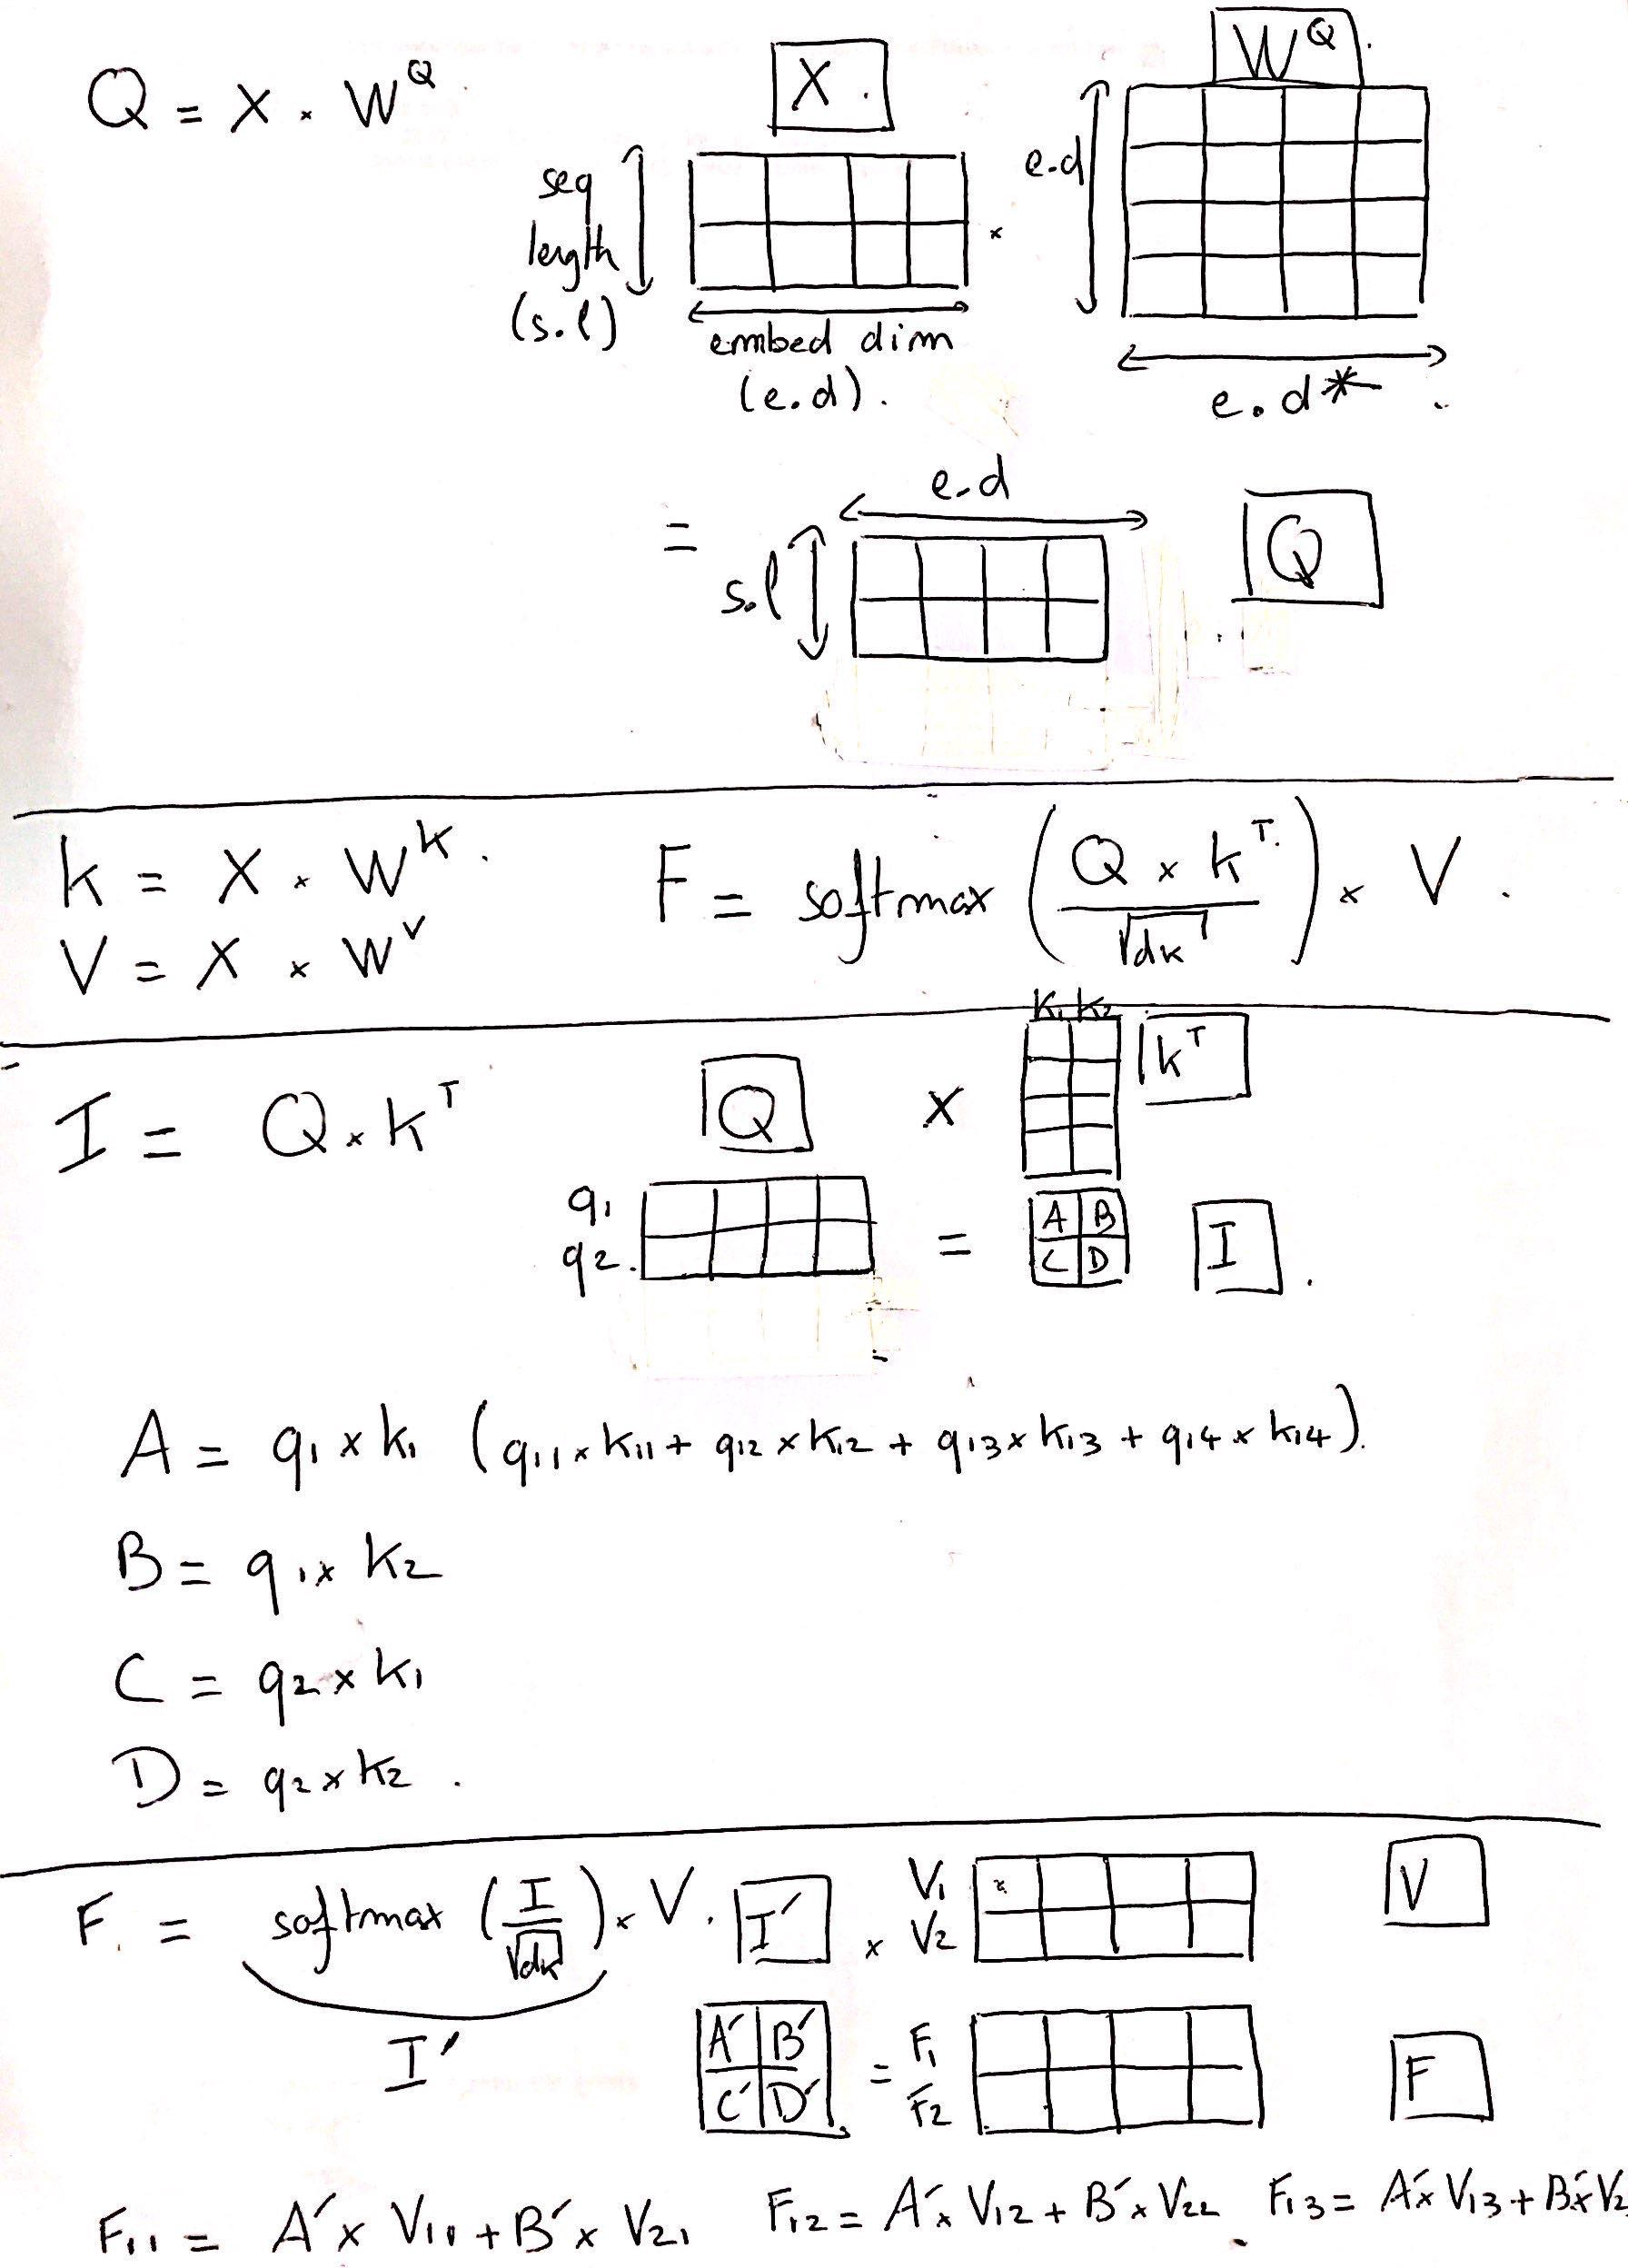 Q = X × W^Q
X .
W^Q .
seq
length
(s.l)
×
e.d
embed dim
(e.d).
e.d* .
=
e.d
s.l
Q
k = X × W^K.
V = X × W^V
F = softmax (Q × k^T. / √dk) × V.
I = Q × k^T
Q
×
K1 K2
k^T
q1
q2.
=
A B
C D
I .
A = q1 × k1 (q11 × k11 + q12 × k12 + q13 × k13 + q14 × k14).
B = q1 × k2
C = q2 × k1
D = q2 × k2 .
F. = softmax (I / √dk) × V.
I′
I′
×
V1
V2
V
A′ B′
C′ D′
=
F1
F2
F
F11 = A′ × V11 + B′ × V21
F12 = A′ × V12 + B′ × V22
F13 = A′ × V13 + B′ × V2